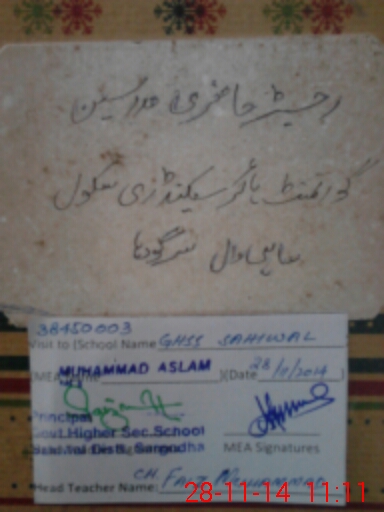 رجسٹر حاضری مدرسین
گورنمنٹ ہائر سیکنڈری سکول
ساہیوال سرگودھا
38450003
Visit to (School Name GHSS SAHIWAL
MUHAMMAD ASLAM )(Date 28/11/2014 )
Principal
Govt Higher Sec. School
Distt. Sargodha MEA Signatures
Head Teacher Name: CH. FAIZ MUHAMMAD
28-11-14 11:11